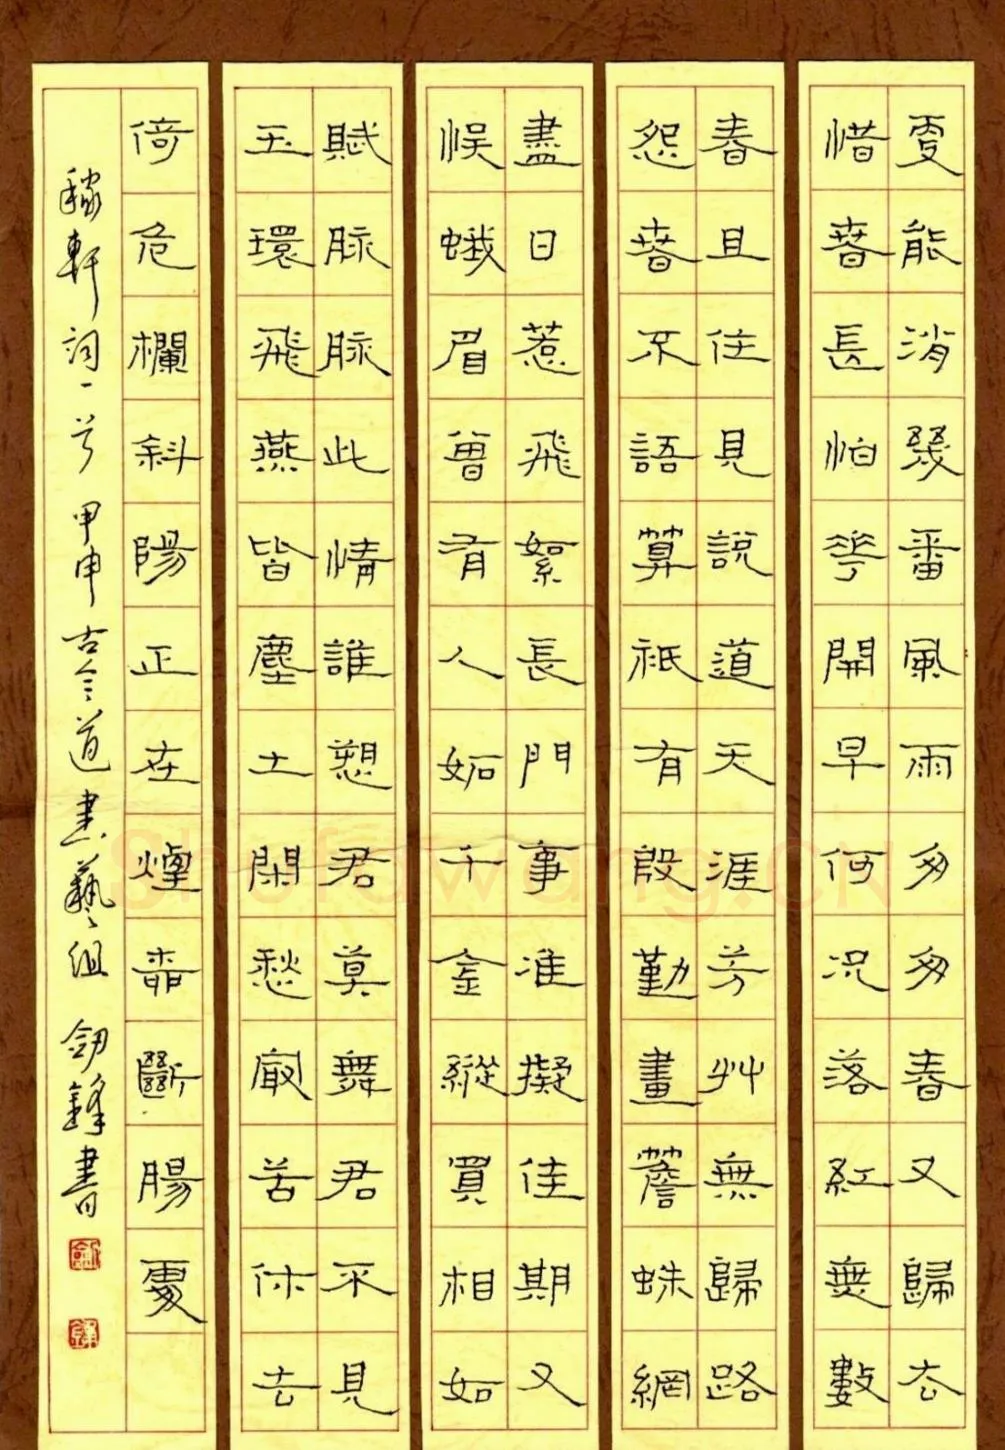 更能消幾番風雨匆匆春又歸去
惜春長怕花開早何況落紅無數
春且住見說道天涯芳艸無歸路
怨春不語算祇有殷勤畫簷蛛網
盡日惹飛絮長門事准擬佳期又
悞蛾眉曾有人妬千金縱買相如
賦脉脉此情誰愬君莫舞君不見
玉環飛燕皆塵土閑愁最苦休去
倚危欄斜陽正在煙柳斷腸處
稼軒詞一首 甲申 古今道書藝組 劍鋒書
劍
鋒
Shufawang.cN